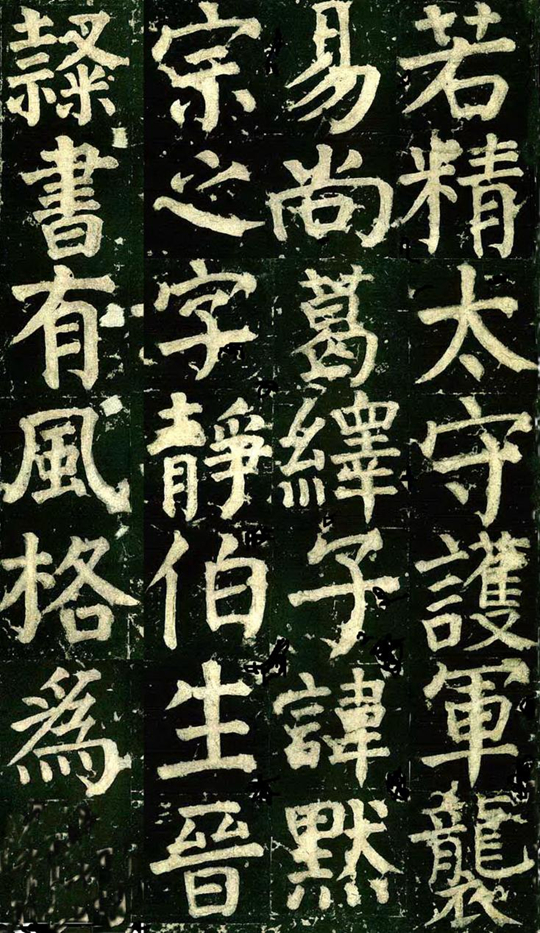 若精太守護軍襲
易尚葛繹子諱默
宗之字靜伯生晉
隸書有風格為